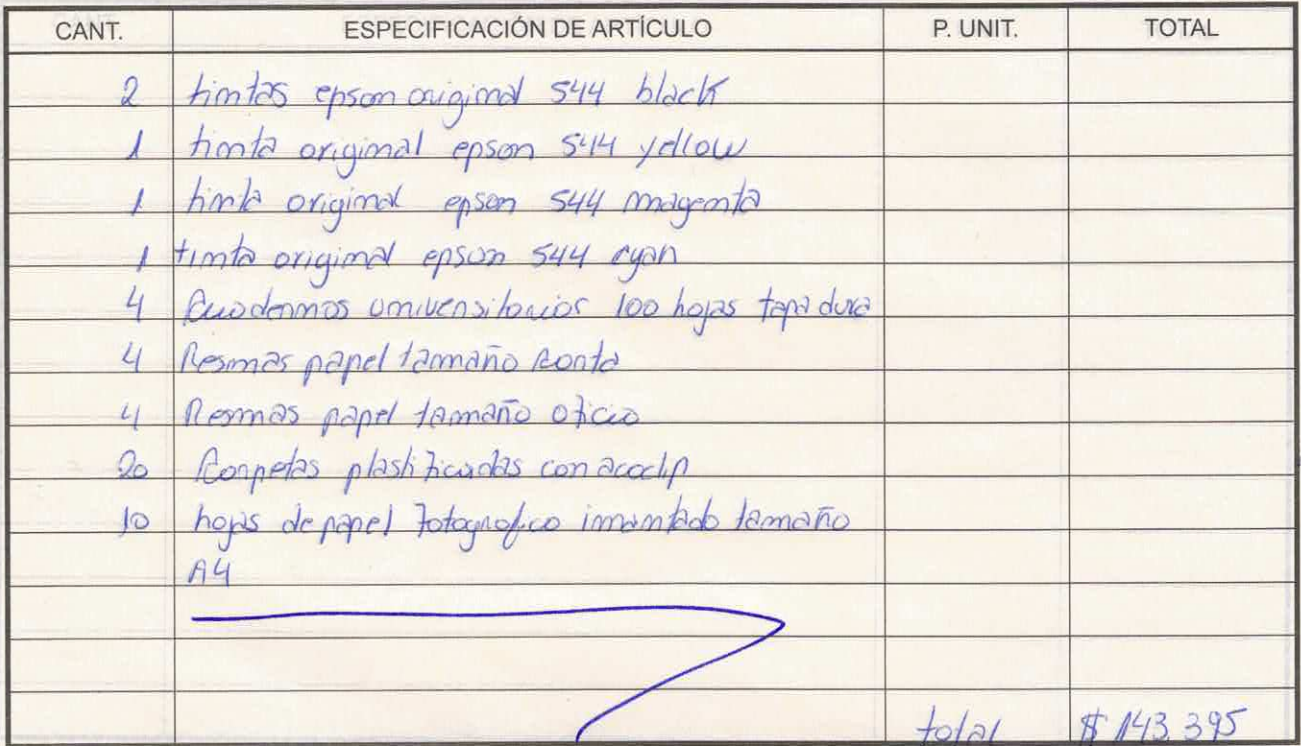 CANT. ESPECIFICACIÓN DE ARTÍCULO P. UNIT. TOTAL
2 tintas epson original 544 black
1 tinta original epson 544 yellow
1 tinta original epson 544 magenta
1 tinta original epson 544 cyan
4 Cuadernos universitarios 100 hojas tapa dura
4 Resmas papel tamaño carta
4 Resmas papel tamaño oficio
20 Carpetas plastificadas con acoclip
10 hojas de papel fotografico imantado tamaño
A4
total $ 143.395